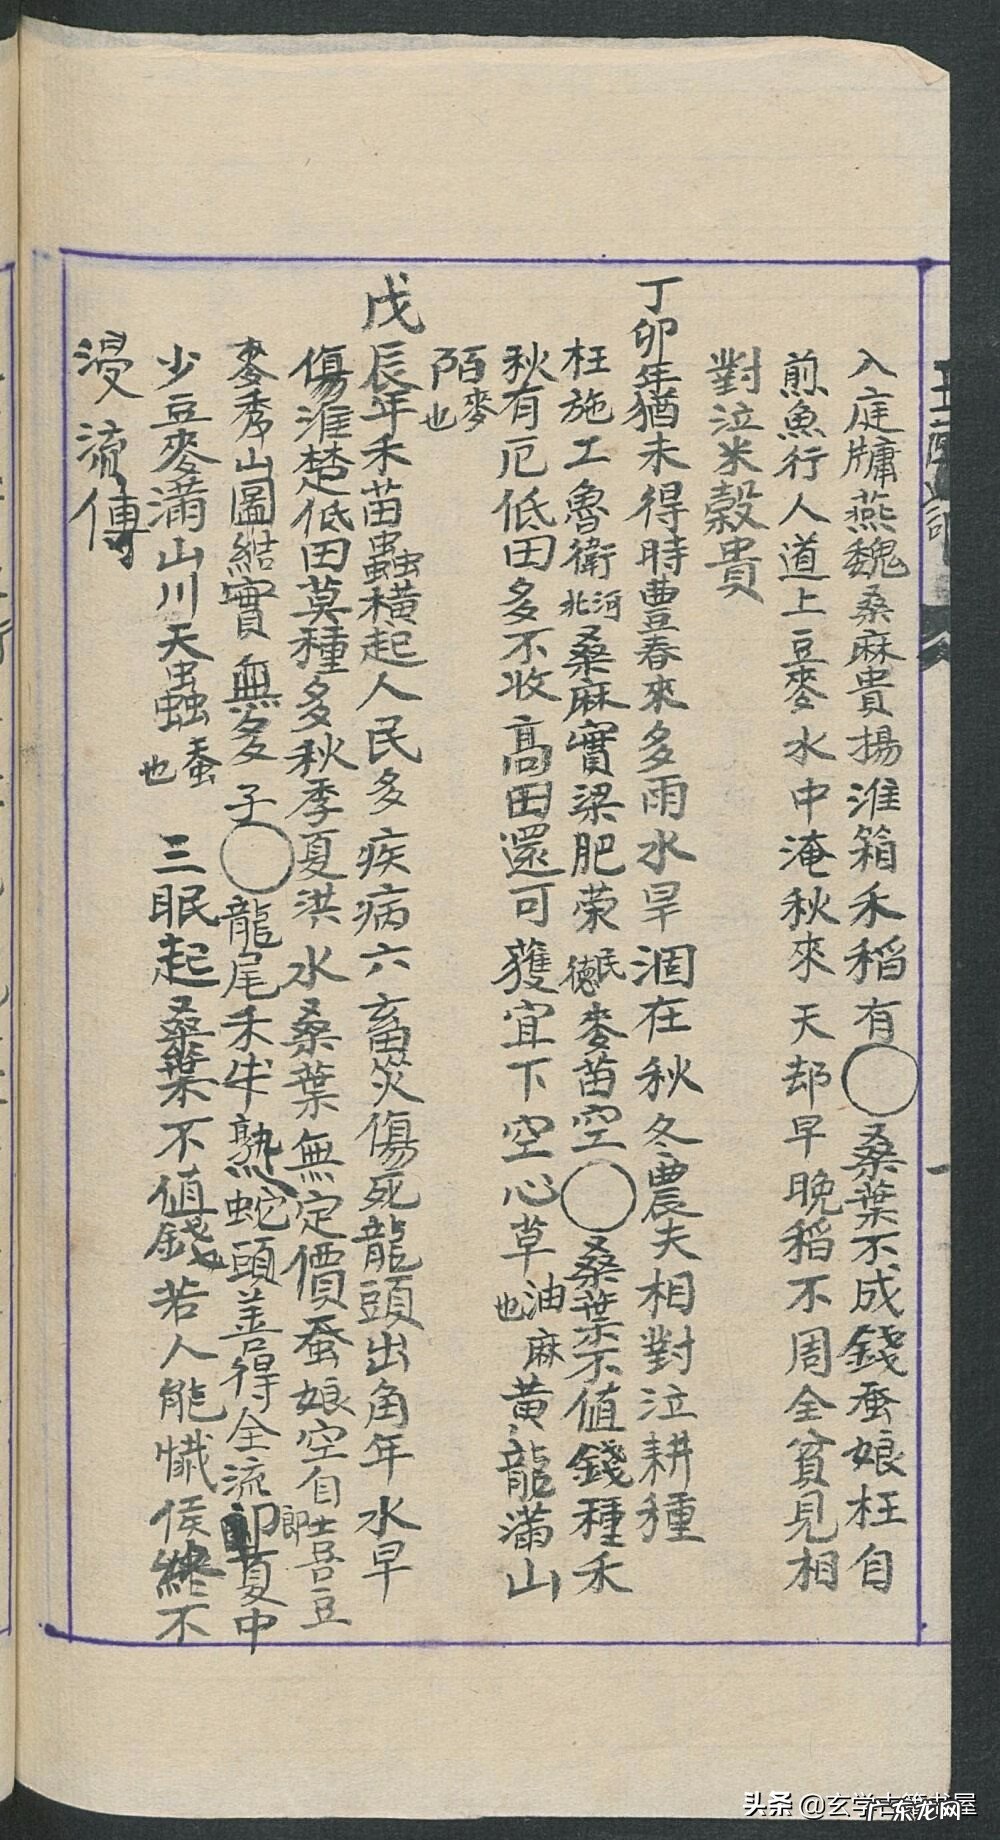 入庭牗燕魏桑麻貴揚淮箱禾稻有○桑葉不成錢蚕娘枉自
煎魚行人道上豆麥水中淹秋來天却旱晚稻不周全貧見相
對泣米穀貴
丁卯年猶未得時豊春來多雨水旱涸在秋冬農夫相對泣耕種
枉施工魯衛河北桑麻實梁肥荣民德麥苗空○桑葉不值錢種禾
秋有厄低田多不收高田還可獲宜下空心草油麻也黄龍滿山
陌麥也
戊辰年禾苗蟲横起人民多疾病六畜災傷死龍頭出角年水旱
傷淮楚低田莫種多秋季夏洪水桑葉無定價蚕娘空自吉郎豆
麥秀山圖結實無多子○龍尾禾半熟蛇頭善得全流夏中
少豆麥滿山川天蟲蚕也三眠起桑葉不值錢若人能懺俟終不
浸流傳
头条 @玄学古籍书屋
广东龙网